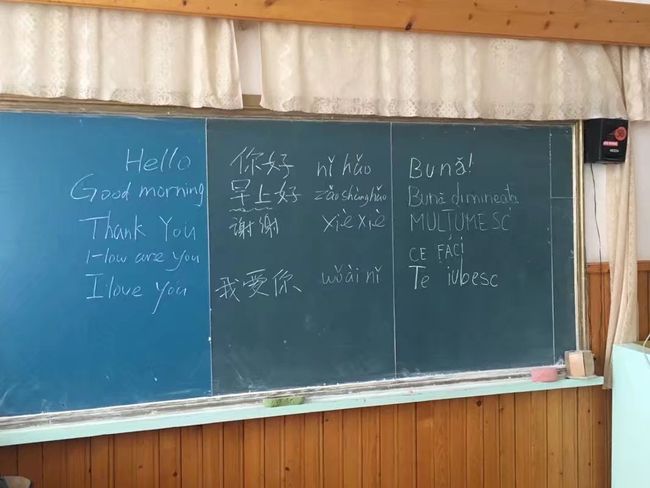 Hello 你好 nǐ hǎo Bună!
Good morning 早上好 zǎo shàng hǎo Bună dimineața
Thank You 谢谢 xiè xiè MULȚUMESC
How are you CE FACI
I love You 我爱你 wǒ ài nǐ Te iubesc